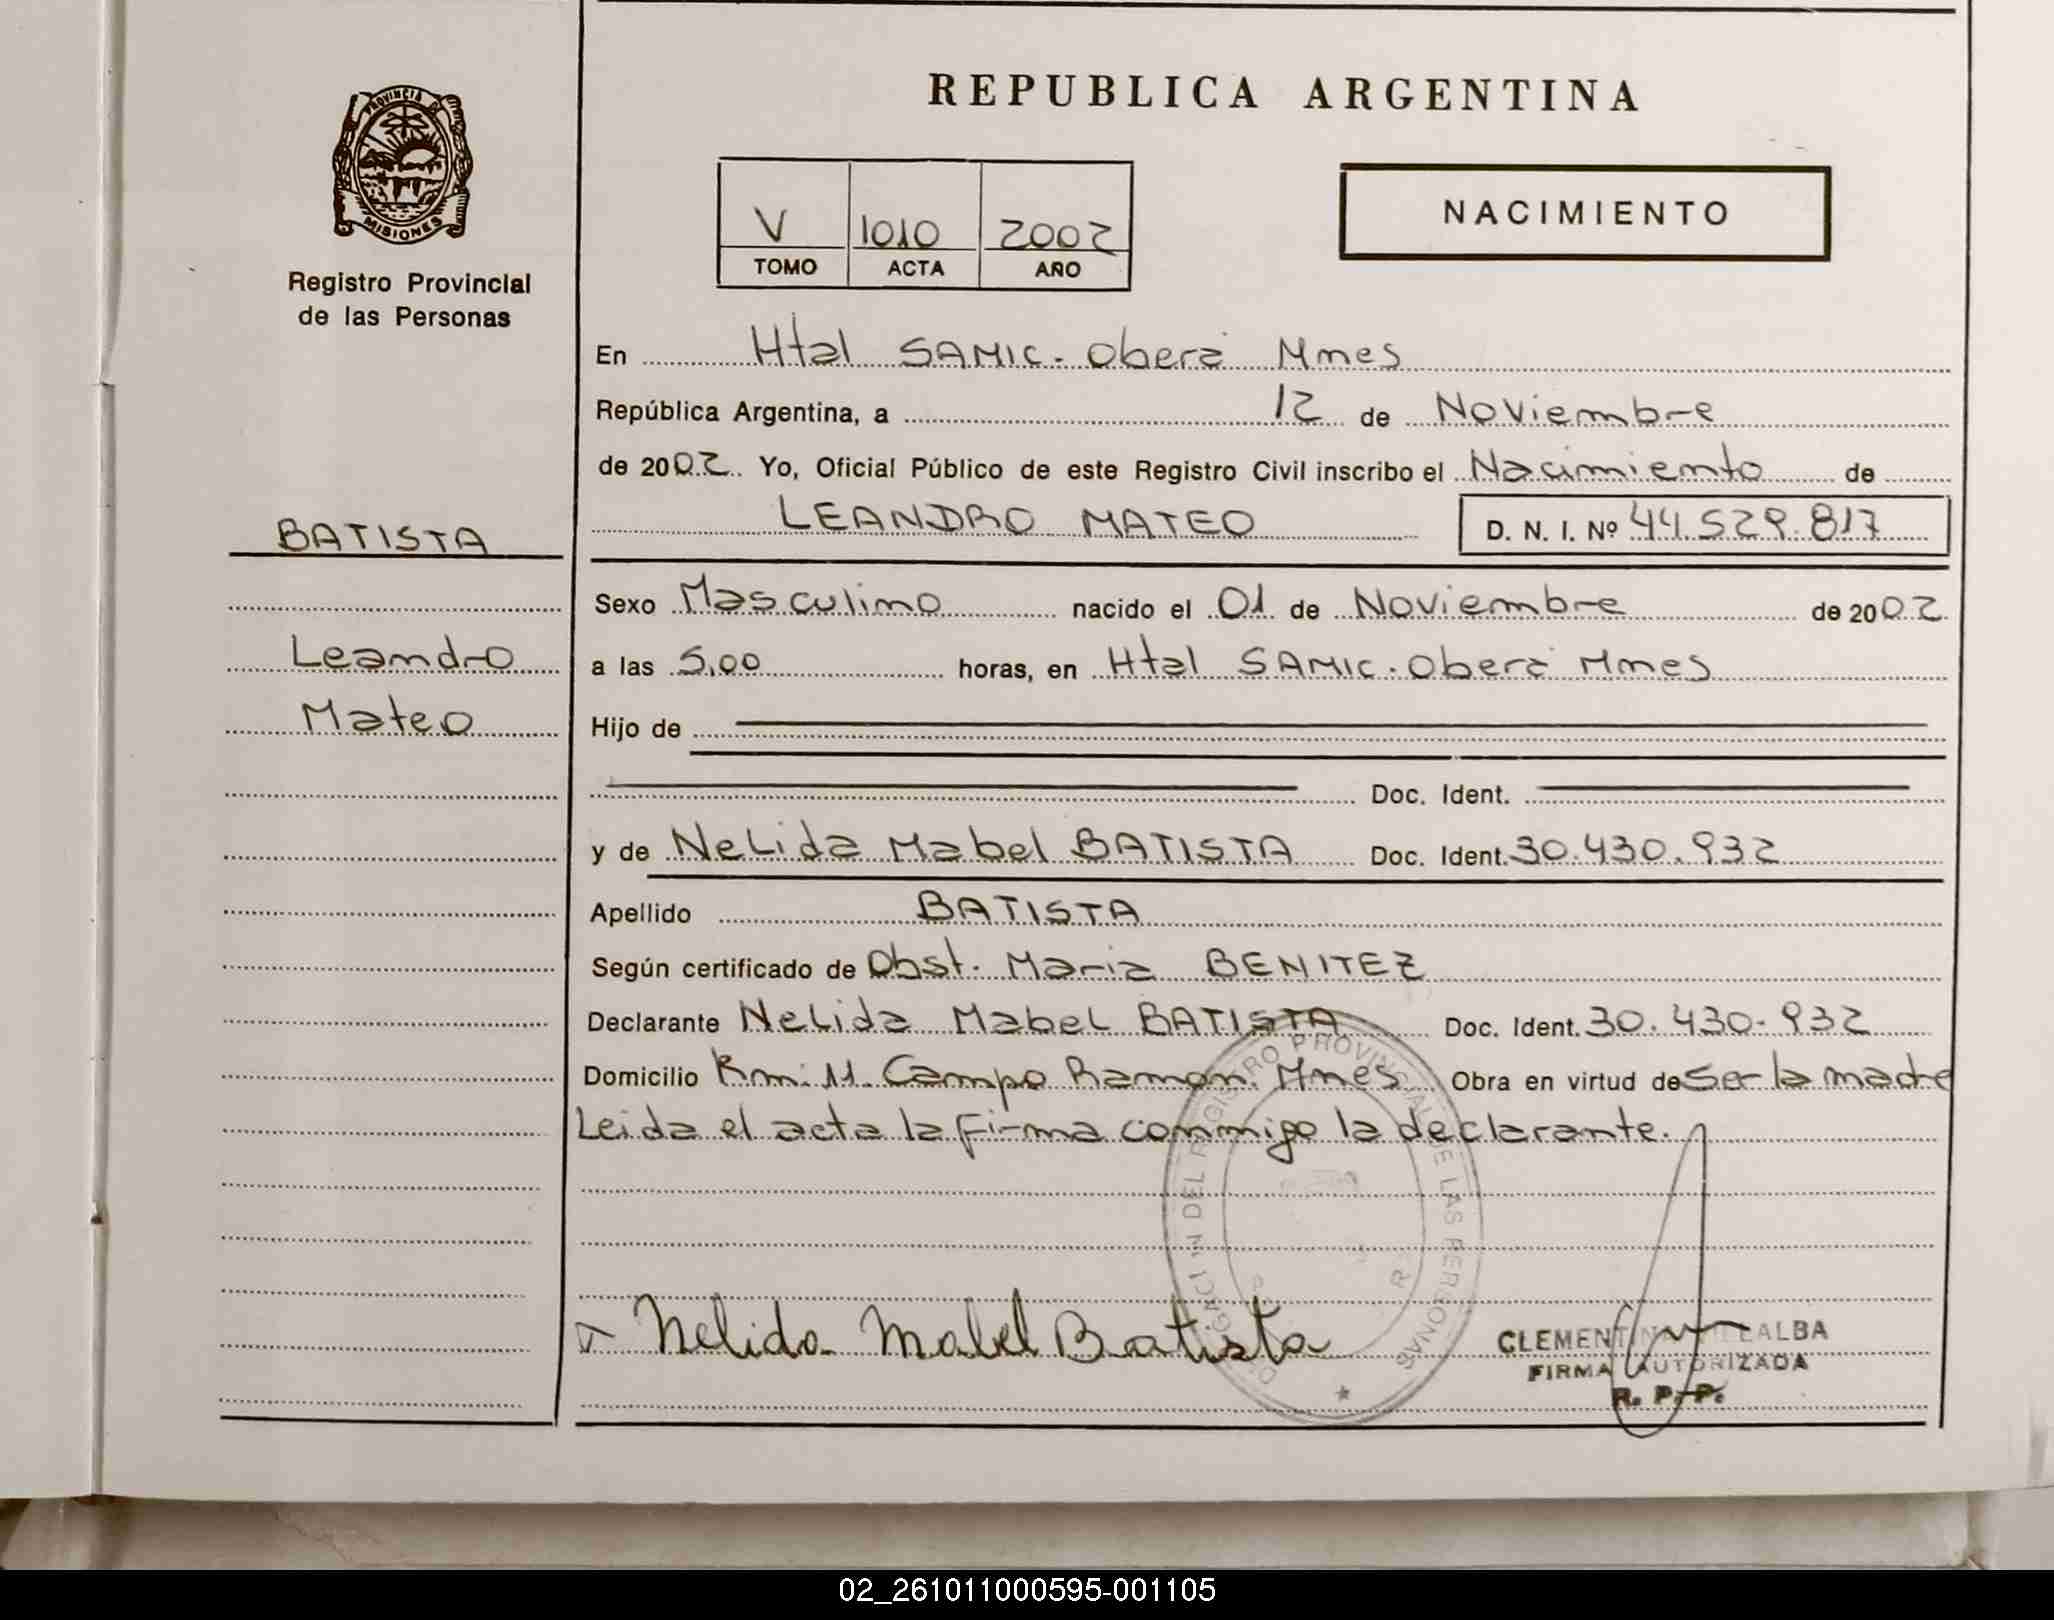 PROVINCIA DE
MISIONES
Registro Provincial
de las Personas
REPUBLICA ARGENTINA
V 1010 2002
TOMO ACTA AÑO
NACIMIENTO
En Htal SAMIC. Oberá Mnes
República Argentina, a 12 de Noviembre
de 2002 Yo, Oficial Público de este Registro Civil inscribo el Nacimiento de
LEANDRO MATEO D. N. I. Nº 44.529.817
BATISTA
Leandro
Mateo
Sexo Masculino nacido el 01 de Noviembre de 2002
a las 5,00 horas, en Htal SAMIC. Oberá Mnes
Hijo de
Doc. Ident.
y de Nelida Mabel BATISTA Doc. Ident. 30.430.932
Apellido BATISTA
Según certificado de Obst. Maria BENITEZ
Declarante Nelida Mabel BATISTA Doc. Ident. 30.430.932
Domicilio Km. 11. Campo Ramon. Mnes Obra en virtud de Ser la madre
Leida el acta la firma conmigo la declarante.
DEL REGISTRO PROVINCIAL DE LAS PERSONAS
Nelida Mabel Batista
FIRMA AUTORIZADA
R. P. P.
02_261011000595-001105